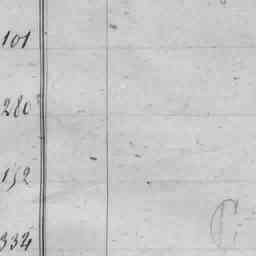 101
280
152
334